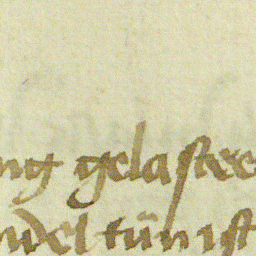 ng gelastee
ndel tün ist